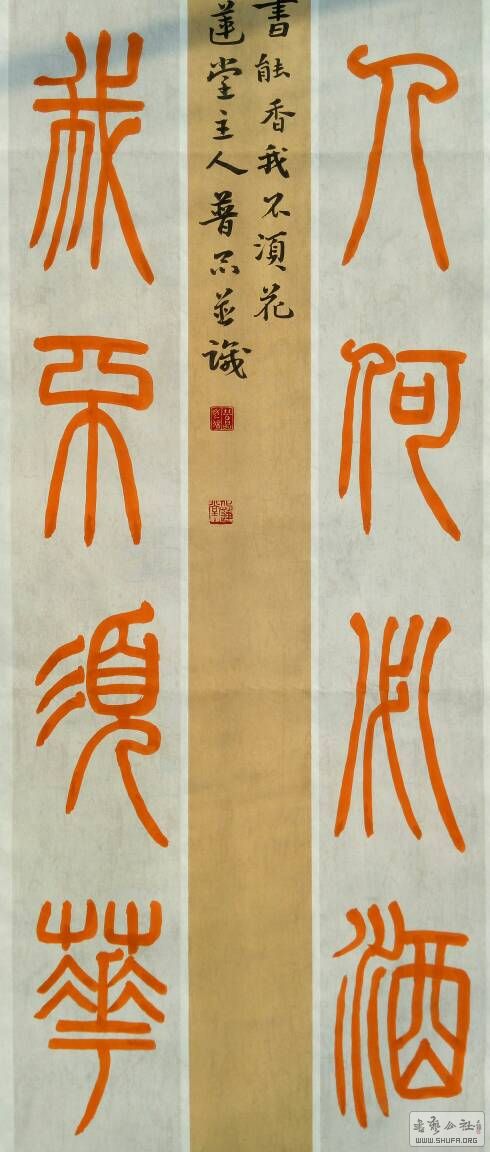 人何必酒
書能香我不須花
蓮堂主人普並識
我不須華
書藝公社
WWW.SHUFA.ORG